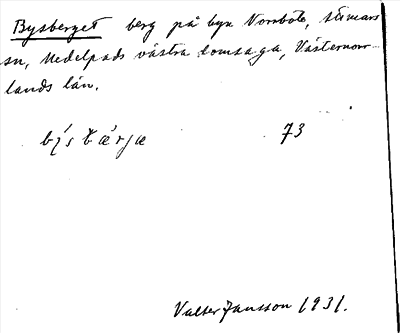 Bysberget berg på byn Vombåte, Stimars
sn, Medelpads västra domsaga, Västernorr-
lands län.
73
Valter Jansson 1931.